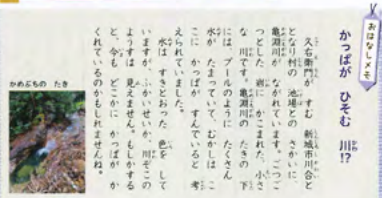 おはなしメモ
かっぱが ひそむ 川!?
久右衛門が すむ 新城市川合と
となり村の 池場との さかいに
亀渕川が ながれています。ごつご
つとした 岩に かこまれた、小さ
な 川です。亀渕川の たきの 下
には、プールのように たくさん
水が たまっていて、むかしは こ
こに かっぱが すんでいると 考
えられていました。
水は すきとおった 色を して
いますが、ふかいせいか、川ぞこの
ようすは 見えません。もしかする
と、今も どこかに かっぱが か
くれているのかもしれませんね。
かめぶちの たき